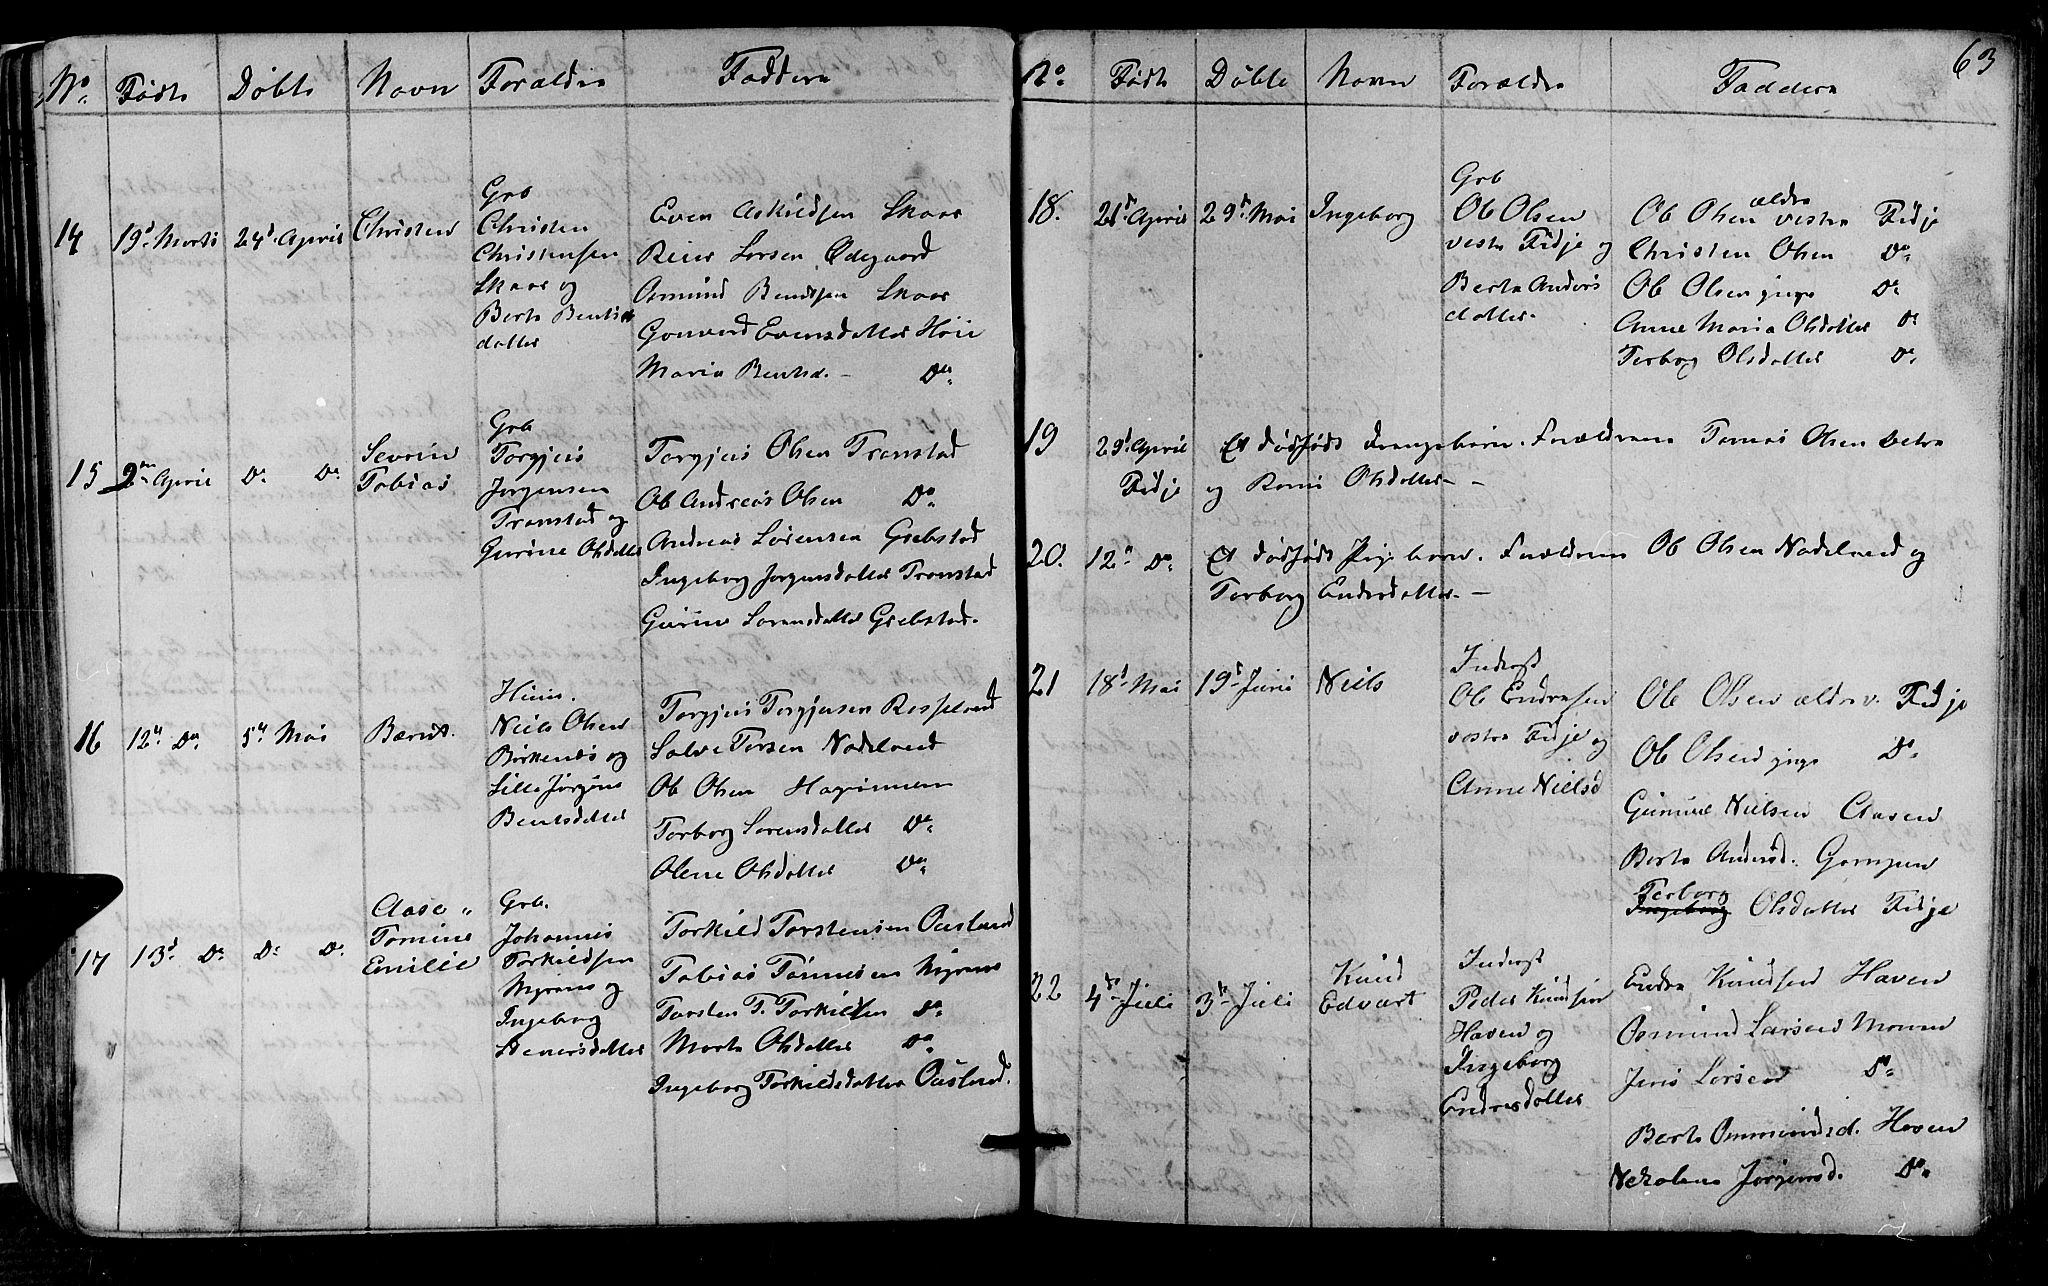 No. Fødte Døbte Navn Forældre Faddere
14 19d. Marts 24d. April Christen
Grb
Christen
Christensen
Skaar og
Berte Bents
datter
Even Askildsen Skaar
Reier Larsen Ødegaard
Osmund Bendtsen Skaar
Gonvord Evensdatter Höie
Maria Bentsd. — Do.
15 2den April Do. Do.
Severin
Tobias
Grb
Torgjeis
Jørgensen
Transtad og
Gurine Olsdatter
Torgjeis Olsen Tronstad
Ole Andreas Olsen Do.
Andreas Lørensen Grebstad
Ingeborg Jørgensdatter Tronstad
Gurine Lorensdatter Grebstad.
16 12te Do. 5te Mai Bærnt.
Huus.
Niels Olsen
Birkenes og
Sille Jørgine
Bentsdatter
Torgjeis Torgjersen Rosseland
Salve Tersen Nodeland
Ole Olsen
Torborg Lorensdatter Do.
Olene Olsdatter Do.
17 13d. Do. Do. Do.
Aase
Tomine
Emilie
Grb.
Johannes
Torkildsen
Myrene og
Ingeborg
Stenersdatter
Torkild Torstensen Oasland
Tobias Tønnesen Myrene
Torsten T. Torkildsen Do.
Marte Olsdatter Do.
Ingeborg Torkildsdatter Oasland.
63
No. Født Døbte Navn Forældre Faddere
18. 21d. April 29d. Mai Ingeborg
Grb
Ole Olsen
vestre Fidje og
Berte Anders
datter.
Ole Olsen ældre vestre Fidje
Christen Olsen Do.
Ole Olsen yngre Do.
Anne Maria Olsdatter Do.
Torborg Olsdatter Do.
19 29d. April Et dødfødt drengebarn. Forældrene Tomas Olsen vestre
Fidje og Olsdatter —
20. 12te Do. Et dødfødt Pigebarn. Forældrene Ole Olsen Nodeland og
Torborg Endresdatter. —
21 18d. Mai 19d. Juni Niels
Inderst
Ole Endresen
vestre Fidje og
Anne Nielsd
Ole Olsen ældre v. Fidje
Ole Olsen yngre Do.
Gunuld Nielsen Aasen
Berte Andersd.
Torborg
Ingeborg Olsdatter Fidje
22 4de Juli 3de Juli
Knud
Edvart
Inderst
Peder Knudsen
Haven og
Ingeborg
Endresdatter
Endre Knudsen Haven
Osmund Larsen Monen
Jens Larsen Do.
Berte Ommundsd. Haven
Nekolene Jørgensd. Do.